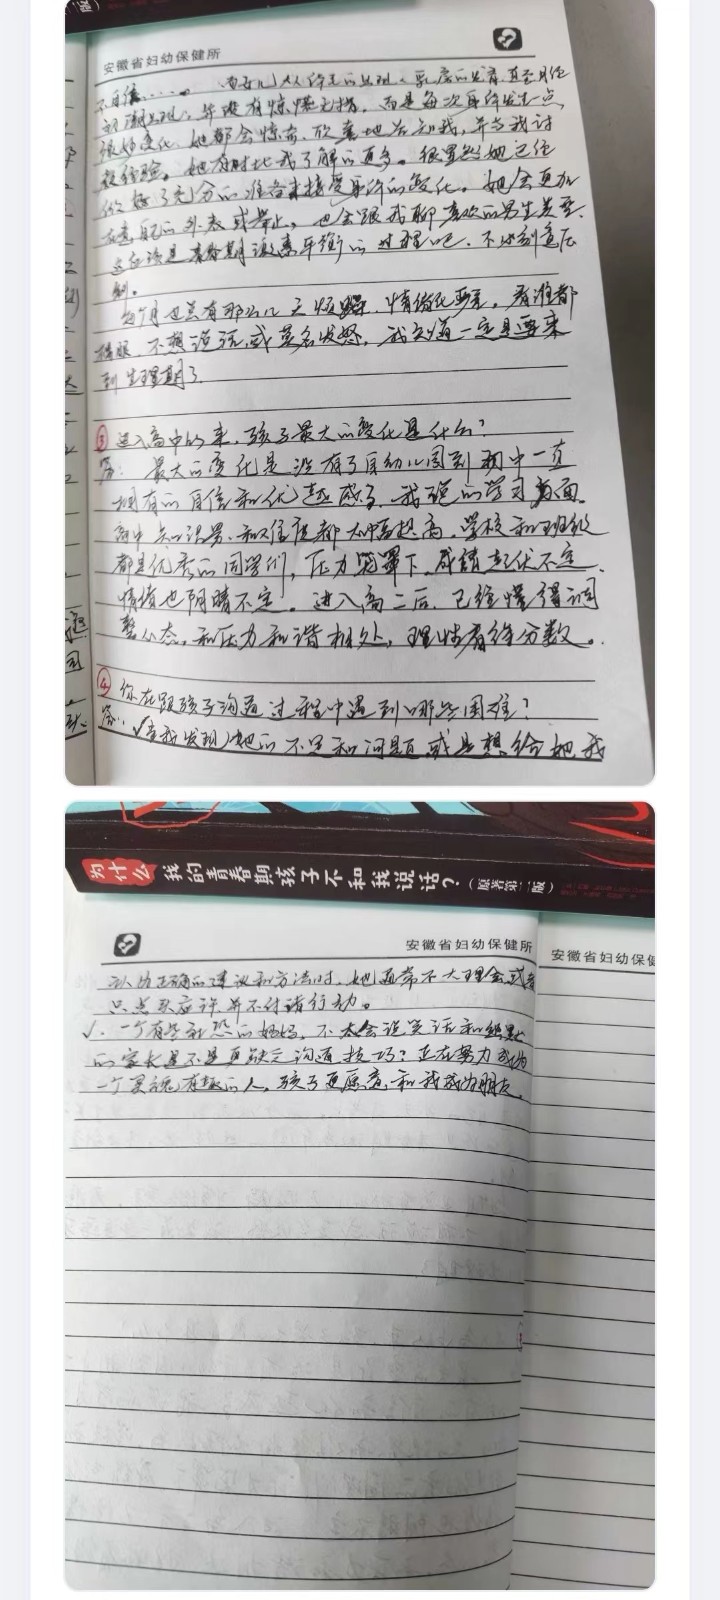 版)
安徽省妇幼保健所
不自信……。 女儿从 的出现、乳房的发育，直至月经
初潮出现，毕竟有惊慌无措，而是每次身体发生一点
很好变化，她都会惊奇、欣喜地告知我，并与我讨
授经验。她有时比我了解的更多。很显然她已经
做好了充分的准备来接受身体的变化。她会更加
在意自己的外表或举止，也会跟我聊喜欢的男生类型，
这应该是青春期激素平衡的过程吧，不必刻意压
制。
每个月也总有那么几天烦躁，情绪化严重，看谁都
不想说话，或莫名发怒，我知道一定是要来
到生理期了。
③ 进入高中以来，孩子最大的变化是什么？
答：最大的变化是没有了自幼儿园到初中一直
拥有的自信和优越感了，我说的学习方面。
高中知识量、难度都大幅提高，学校和班级
都是优秀的同学们，压力笼罩下，成绩起伏不定，
情绪也阴晴不定。进入高二后，已经懂得调
整心态，和压力和谐相处，理性看待分数。
④ 你在跟孩子沟通过程中遇到哪些困难？
答：√当我发现她的不足和问题或是想给她我
为什么我的青春期孩子不和我说话？（原著第二版）
安徽省妇幼保健所
安徽省妇幼保健
认为正确的建议和方法时，她通常不大理会或者
只点头应许并不付诸行动。
√. 一个有些社恐的妈妈，不太会说笑话和幽默
的家长是不是更缺乏沟通技巧？正在努力成为
一个灵魂有趣的人，孩子更愿意和我成为朋友。